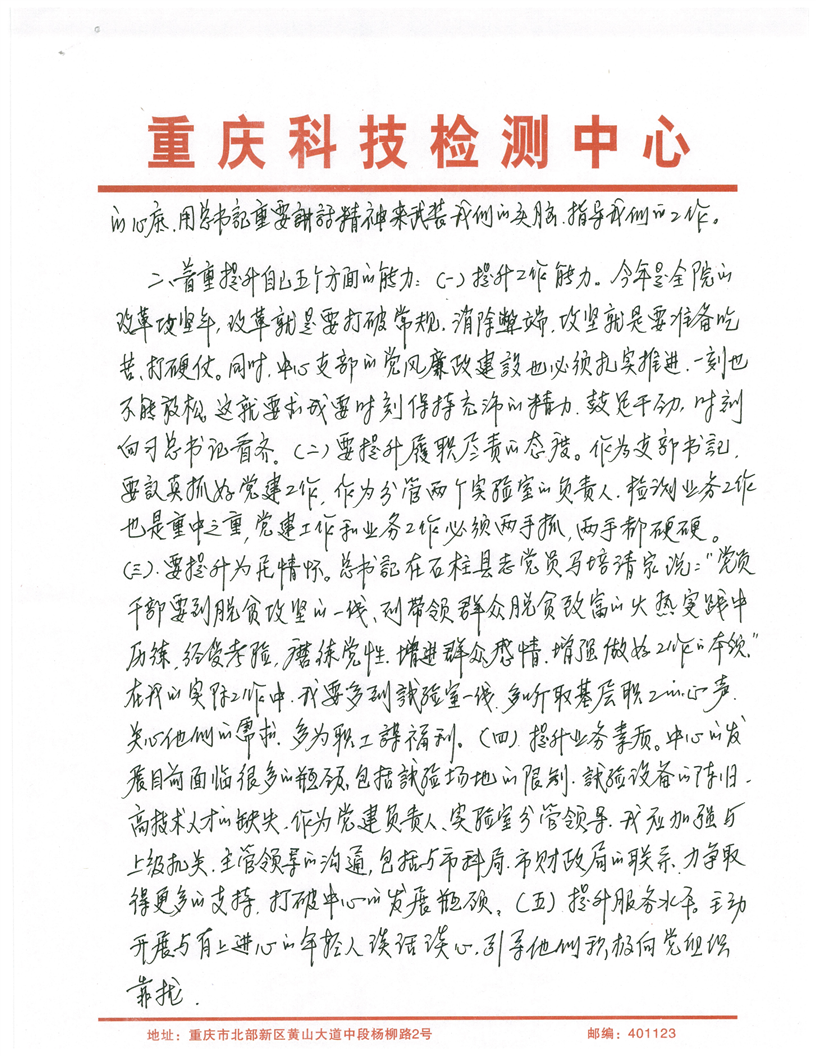 重庆科技检测中心
的心底、用总书记重要讲话精神来武装我们的头脑、指导我们的工作。
二、着重提升自己五个方面的能力：(一)提升工作能力。今年是全院的
改革攻坚年，改革就是要打破常规、消除弊端，攻坚就是要准备吃
苦、打硬仗。同时，中心支部的党风廉政建设也必须扎实推进，一刻也
不能放松，这就要求我要时刻保持充沛的精力，鼓足干劲，时刻
向习总书记看齐。(二)要提升履职尽责的态度。作为支部书记，
要认真抓好党建工作，作为分管两个实验室的负责人，检测业务工作
也是重中之重，党建工作和业务工作必须两手抓，两手都硬硬。
(三)、要提升为民情怀。总书记在石柱县老党员马培清家说："党员
干部要到脱贫攻坚的一线、到带领群众脱贫致富的火热实践中
历练，经受考验，磨练党性，增进群众感情，增强做好工作的本领。"
在我的实际工作中，我要多到试验室一线，多听取基层职工的心声，
关心他们的需求，多为职工谋福利。(四)提升业务素质。中心的发
展目前面临很多的瓶颈，包括试验场地的限制、试验设备的陈旧、
高技术人才的缺失，作为党建负责人、实验室分管领导，我应加强与
上级机关、主管领导的沟通，包括与市科局、市财政局的联系，力争取
得更多的支持，打破中心的发展瓶颈。(五)提升服务水平。主动
开展与有上进心的年轻人谈话谈心，引导他们积极向党组织
靠拢.
地址：重庆市北部新区黄山大道中段杨柳路2号 邮编：401123